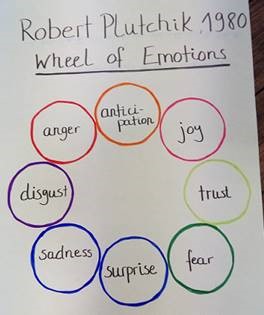 Robert Plutchik, 1980
Wheel of Emotions
antici-
pation
anger
joy
disgust
trust
sadness
surprise
fear